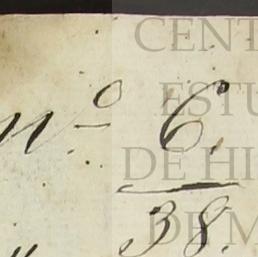 Nº 6.
38.
CENT
ESTU
DE HI
DE M